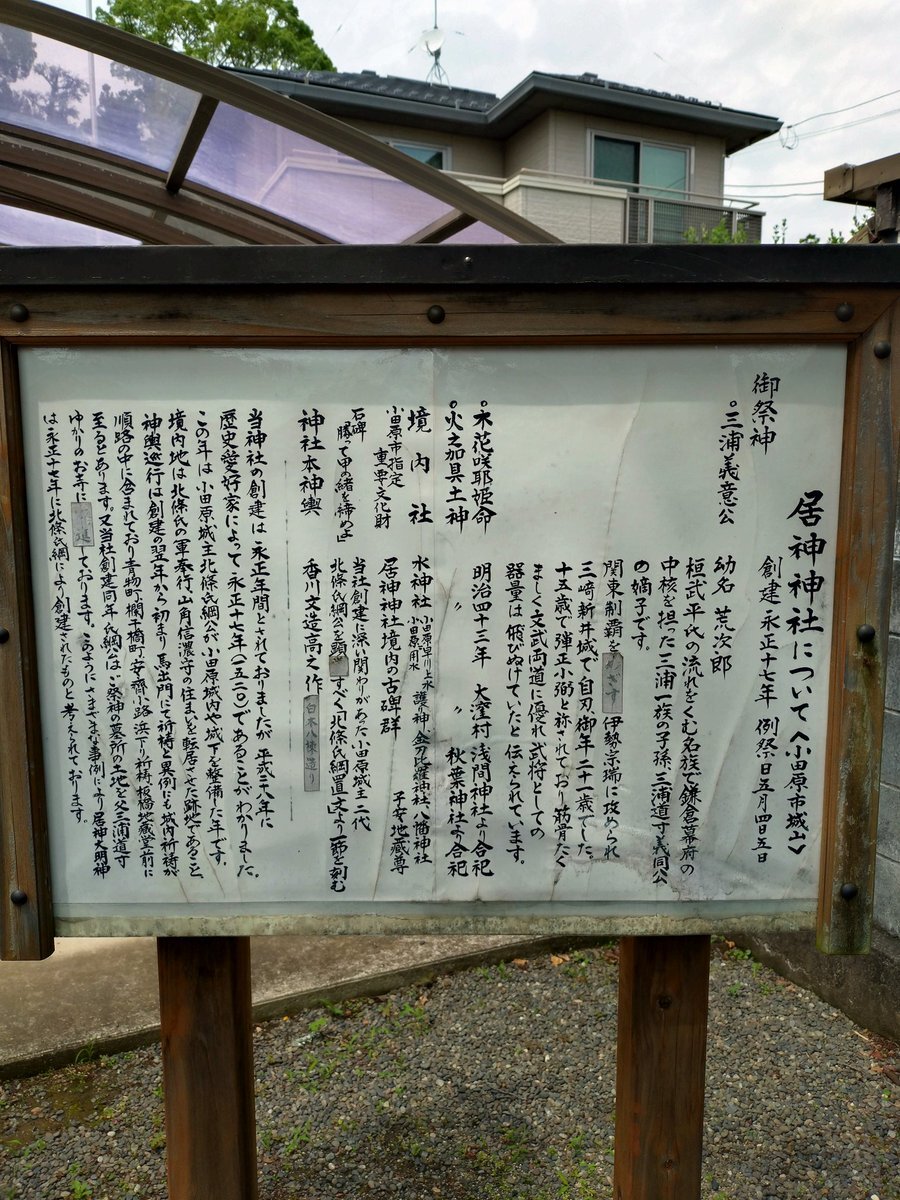 居神神社について〈小田原市城山〉
創建 永正十七年 例祭日五月四日五日
御祭神
三浦義意公 幼名 荒次郎
桓武平氏の流れをくむ名族で鎌倉幕府の
中核を担った三浦一族の子孫、三浦道寸義同公
の嫡子です。
関東制覇をめざす伊勢宗瑞に攻められ
三﨑新井城で自刃、御年二十一歳でした。
十五歳で弾正小弼と称されており筋骨たく
ましく文武両道に優れ武将としての
器量は飛びぬけていたと伝えられています。
木花咲耶姫命 明治四十三年 大窪村 浅間神社より合祀
火之加具土神 〃 〃 秋葉神社より合祀
境内社 水神社 小田原早川上水 小田原用水 護り神 金刀比羅神社 八幡神社
子安地蔵尊
小田原市指定 重要文化財 居神神社境内の古碑群
石碑 勝って甲の緒を締めよ 当社創建に深い関わりがあった小田原城主二代
北條氏綱公を顕すべく北條氏綱置文より一節を刻む
神社本神輿 香川文造高之作 白木八棟造り
当神社の創建は永正年間とされておりましたが平成十八年に
歴史愛好家によって永正十七年(一五二〇)であることがわかりました。
この年は小田原城主北條氏綱公が小田原城内や城下を整備した年です。
境内地は北條氏の軍奉行、山角信濃守の住まいを転居させた跡地であること、
神輿巡行は創建の翌年から初まり馬出門にて祈祷と異例にも城内祈祷が
順路の中に含まれており青物町、欄干橋町、安斎小路、浜下り祈祷、板橋地蔵堂前に
至るとあります。又当社創建同年 氏綱公はご祭神の墓所の土地を父三浦道寸
ゆかりのお寺にております。このようにさまざまな事例により居神大明神
は永正十七年に北條氏綱により創建されたものと考えられております。